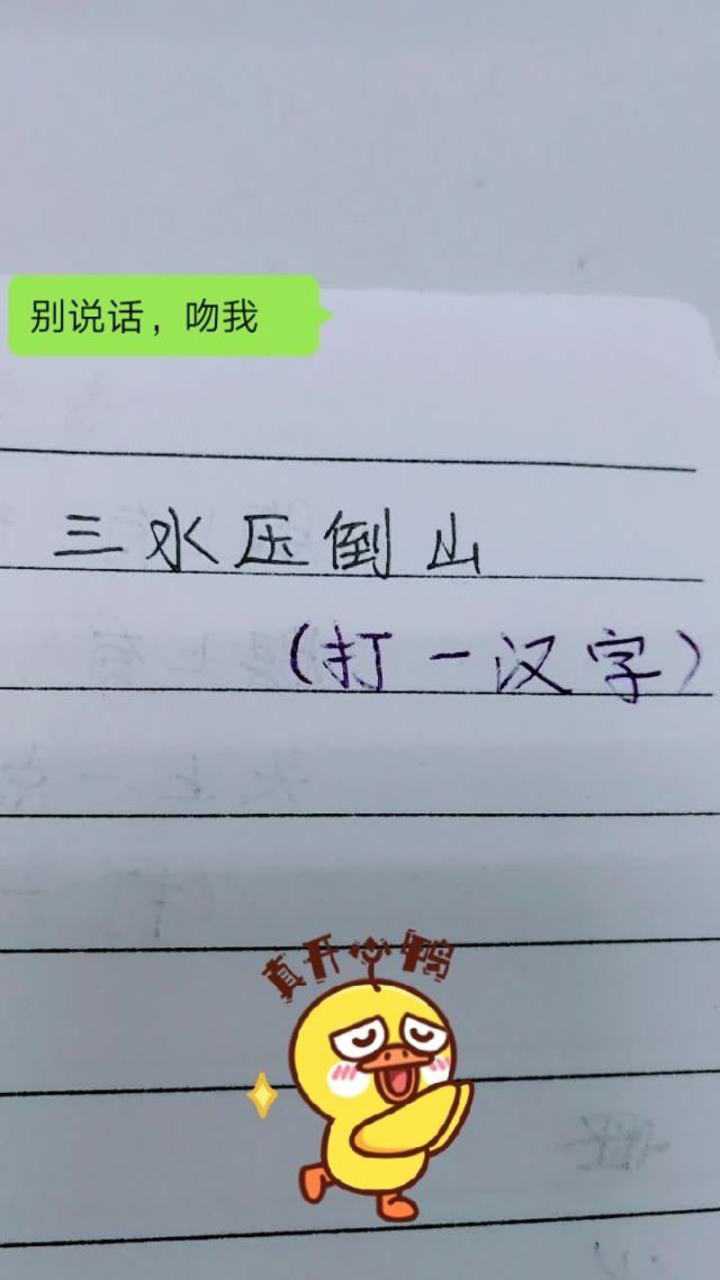 别说话，吻我
三水压倒山
（打一汉字）
真开心鸭